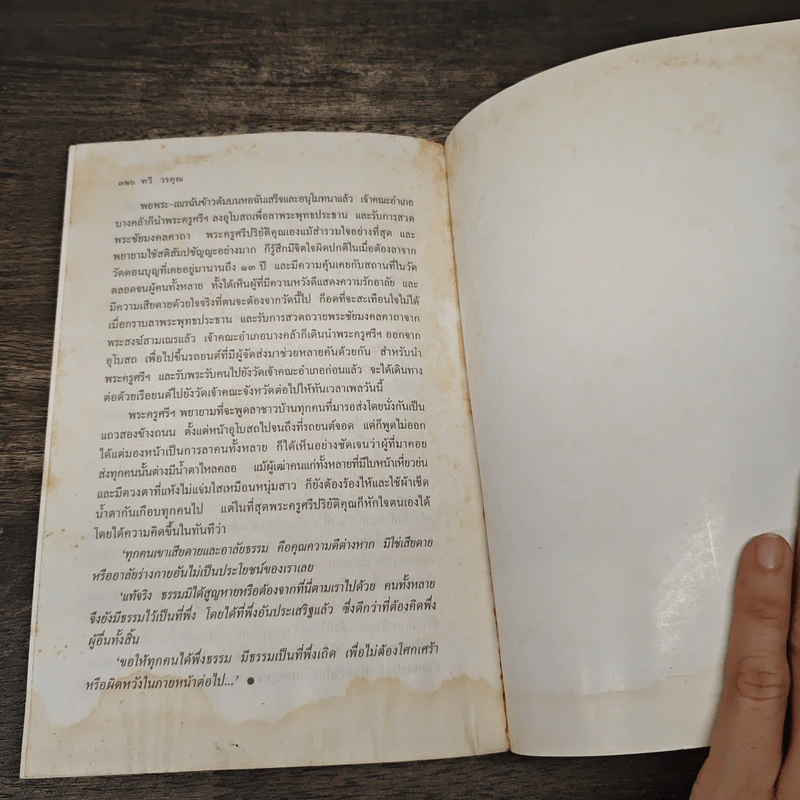 ๗๒๖ ทวี วรคุณ
พอพระ-เณรฉันข้าวต้มบนหอฉันเสร็จและอนุโมทนาแล้ว เจ้าคณะอำเภอ
บางคล้าก็นำพระครูศรีฯ ลงอุโบสถเพื่อลาพระพุทธประธาน และรับการสวด
พระชัยมงคลคาถา พระครูศรีปริยัติคุณเองแม้สำรวมใจอย่างที่สุด และ
พยายามใช้สติสัมปชัญญะอย่างมาก ก็รู้สึกมีจิตใจผิดปกติในเมื่อต้องลาจาก
วัดดอนบุญที่เคยอยู่มานานถึง ๑๓ ปี และมีความคุ้นเคยกับสถานที่ในวัด
ตลอดจนผู้คนทั้งหลาย ทั้งได้เห็นผู้ที่มีความหวังดีแสดงความรักอาลัย และ
มีความเสียดายด้วยใจจริงที่ตนจะต้องจากวัดนี้ไป ก็อดที่จะสะเทือนใจไม่ได้
เมื่อกราบลาพระพุทธประธาน และรับการสวดถวายพระชัยมงคลคาถาจาก
พระสงฆ์สามเณรแล้ว เจ้าคณะอำเภอบางคล้าก็เดินนำพระครูศรีฯ ออกจาก
อุโบสถ เพื่อไปขึ้นรถยนต์ที่มีผู้จัดส่งมาช่วยหลายคันด้วยกัน สำหรับนำ
พระครูศรีฯ และรับพระรับคนไปยังวัดเจ้าคณะอำเภอก่อนแล้ว จะได้เดินทาง
ต่อด้วยเรือยนต์ไปยังวัดเจ้าคณะจังหวัดต่อไปให้ทันเวลาเพลวันนี้
พระครูศรีฯ พยายามที่จะพูดลาชาวบ้านทุกคนที่มารอส่งโดยนั่งกันเป็น
แถวสองข้างถนน ตั้งแต่หน้าอุโบสถไปจนถึงที่รถยนต์จอด แต่ก็พูดไม่ออก
ได้แต่มองหน้าเป็นการลาคนทั้งหลาย ก็ได้เห็นอย่างชัดเจนว่าผู้ที่มาคอย
ส่งทุกคนนั้นต่างมีน้ำตาไหลคลอ แม้ผู้เฒ่าคนแก่ทั้งหลายที่มีใบหน้าเหี่ยวย่น
และมีดวงตาที่แห้งไม่แจ่มใสเหมือนหนุ่มสาว ก็ยังต้องร้องไห้และใช้ผ้าเช็ด
น้ำตากันเกือบทุกคนไป แต่ในที่สุดพระครูศรีปริยัติคุณก็หักใจตนเองได้
โดยได้ความคิดขึ้นในทันทีว่า
‘ทุกคนเขาเสียดายและอาลัยธรรม คือคุณความดีต่างหาก มิใช่เสียดาย
หรืออาลัยร่างกายอันไม่เป็นประโยชน์ของเราเลย
‘แท้จริง ธรรมมิได้สูญหายหรือต้องจากที่นี่ตามเราไปด้วย คนทั้งหลาย
จึงยังมีธรรมไว้เป็นที่พึ่ง โดยได้ที่พึ่งอันประเสริฐแล้ว ซึ่งดีกว่าที่ต้องคิดพึ่ง
ผู้อื่นทั้งสิ้น
‘ขอให้ทุกคนได้พึ่งธรรม มีธรรมเป็นที่พึ่งเถิด เพื่อไม่ต้องโศกเศร้า
หรือผิดหวังในภายหน้าต่อไป...’ ●